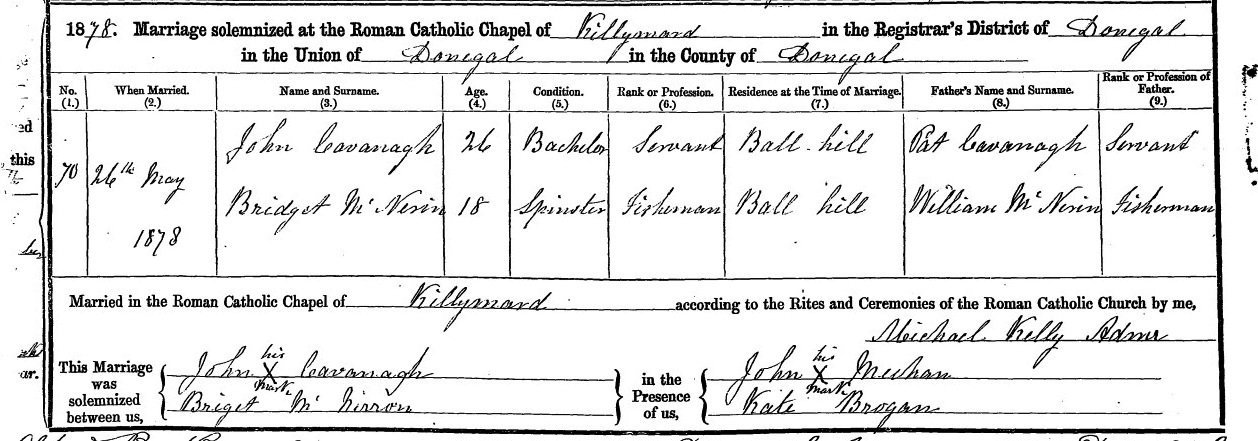 1878. Marriage solemnized at the Roman Catholic Chapel of Killymard in the Registrar's District of Donegal
in the Union of Donegal in the County of Donegal
No. (1.) When Married. (2.) Name and Surname. (3.) Age. (4.) Condition. (5.) Rank or Profession. (6.) Residence at the Time of Marriage. (7.) Father's Name and Surname. (8.) Rank or Profession of Father. (9.)
John Cavanagh 26 Bachelor Servant Ball hill Pat Cavanagh Servant
70 26th May
Bridget McNerin 18 Spinster Fisheman Ball hill William McNerin Fisherman
1878
Married in the Roman Catholic Chapel of Killymard according to the Rites and Ceremonies of the Roman Catholic Church by me,
Michael Kelly Admr
This Marriage was solemnized between us,
John his X mark Cavanagh
Briget Mc Nirron
in the Presence of us,
John his X mark Meehan
Kate Brogan
ed
this
ar.